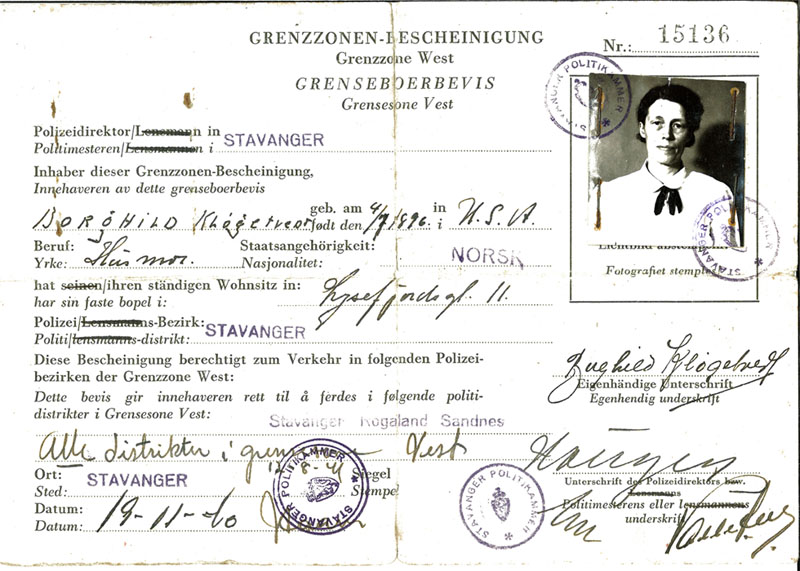 GRENZZONEN-BESCHEINIGUNG
Grenzzone West
GRENSEBOERBEVIS
Grensesone Vest
Nr.: 15136
Polizeidirektor/Lensmann in
Politimesteren/Lensmannen i STAVANGER
Inhaber dieser Grenzzonen-Bescheinigung,
Innehaveren av dette grenseboerbevis
geb. am in
BORGHILD Kløgetvedt født den 4/7 1896. i U.S.A.
Beruf: Staatsangehörigkeit:
Yrke: Husmor. Nasjonalitet: NORSK
hat seinen/ihren ständigen Wohnsitz in:
har sin faste bopel i: Lysefjordsgt. 11.
Polizei/Lensmanns-Bezirk:
Politi/lensmanns-distrikt: STAVANGER
Diese Bescheinigung berechtigt zum Verkehr in folgenden Polizei-
bezirken der Grenzzone West:
Dette bevis gir innehaveren rett til å ferdes i følgende politi-
distrikter i Grensesone Vest:
Stavanger Rogaland Sandnes
Alle distrikter i Vest
Ort: Siegel
Sted: STAVANGER Stempel
Datum:
Datum: 19-11-40
STAVANGER POLITIKAMMER
STAVANGER POLITIKAMMER
Fotografiet stemples
STAVANGER POLITIKAMMER
Kløgetvedt
Eigenhändige Unterschrift
Egenhendig underskrift
Unterschrift des Polizeidirektors bzw.
Lensmanns
Politimesterens eller lensmannens
underskrift
STAVANGER POLITIKAMMER